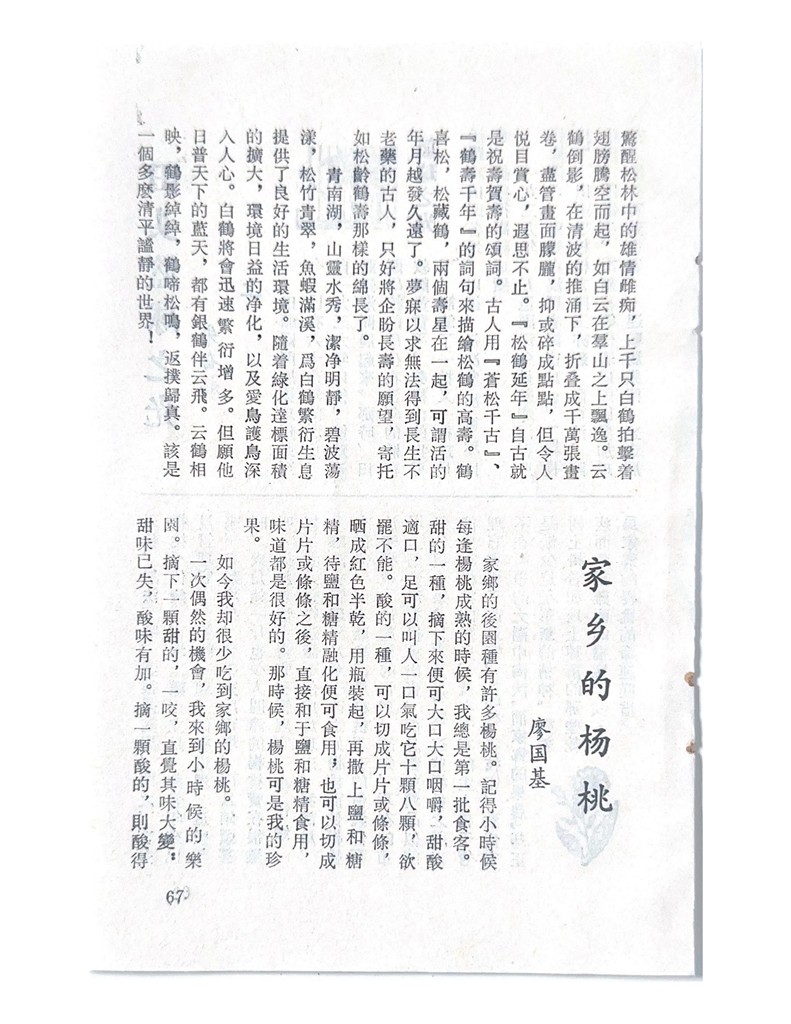 驚醒松林中的雄情雌痴，上千只白鶴拍擊着
翅膀騰空而起，如白云在羣山之上飄逸。云
鶴倒影，在清波的推涌下，折叠成千萬張畫
卷，盡管畫面朦朧，抑或碎成點點，但令人
悦目賞心，遐思不止。『松鶴延年』自古就
是祝壽賀壽的頌詞。古人用『蒼松千古』、
『鶴壽千年』的詞句來描繪松鶴的高壽。鶴
喜松，松藏鶴，兩個壽星在一起，可謂活的
年月越發久遠了。夢寐以求無法得到長生不
老藥的古人，只好將企盼長壽的願望，寄托
如松齡鶴壽那樣的綿長了。
青南湖，山靈水秀，潔净明靜，碧波蕩
漾，松竹青翠，魚蝦滿溪，爲白鶴繁衍生息
提供了良好的生活環境。隨着綠化達標面積
的擴大，環境日益的净化，以及愛鳥護鳥深
入人心。白鶴將會迅速繁衍增多。但願他
日普天下的藍天，都有銀鶴伴云飛。云鶴相
映，鶴影綽綽，鶴啼松鳴，返撲歸真。該是
一個多麽清平謐靜的世界！
家乡的杨桃
廖国基
家鄉的後園種有許多楊桃。記得小時候
每逢楊桃成熟的時候，我總是第一批食客。
甜的一種，摘下來便可大口大口咽嚼，甜酸
適口，足可以叫人一口氣吃它十顆八顆，欲
罷不能。酸的一種，可以切成片片或條條，
晒成紅色半乾，用瓶裝起，再撒上鹽和糖
精，待鹽和糖精融化便可食用；也可以切成
片片或條條之後，直接和于鹽和糖精食用，
味道都是很好的。那時候，楊桃可是我的珍
果。
如今我却很少吃到家鄉的楊桃。
一次偶然的機會，我來到小時候的樂
園。摘下一顆甜的，一咬，直覺其味大變：
甜味已失，酸味有加。摘一顆酸的，則酸得
67